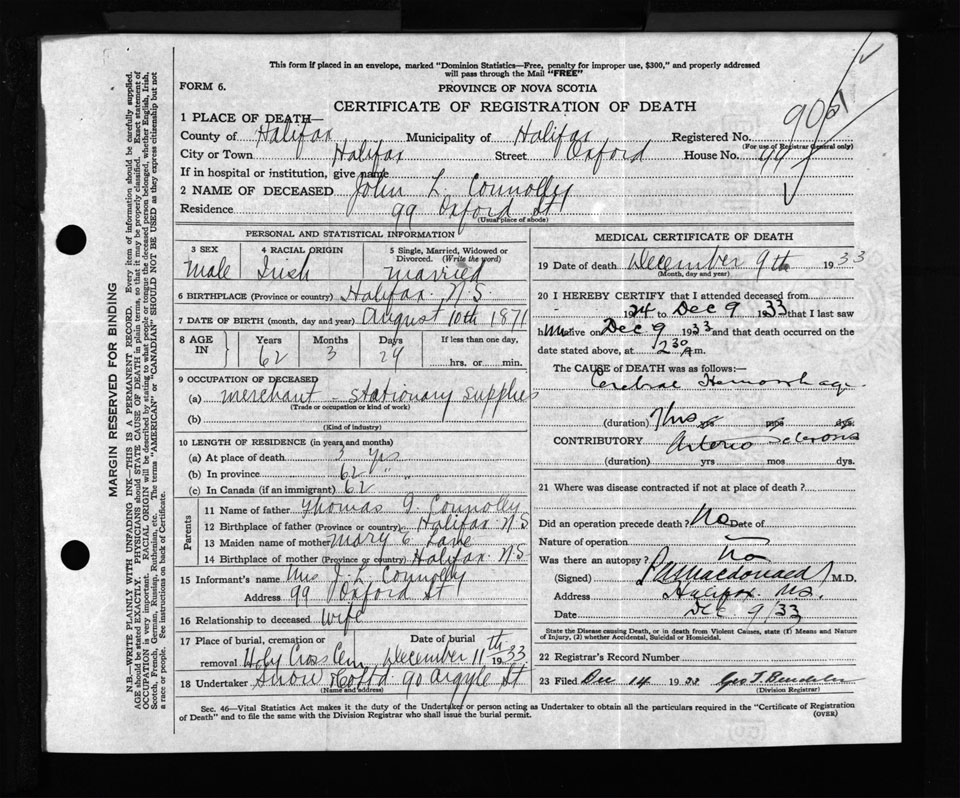 This form if placed in an envelope, marked "Dominion Statistics—Free, penalty for improper use, $300," and properly addressed
will pass through the Mail "FREE"
FORM 6.
PROVINCE OF NOVA SCOTIA
CERTIFICATE OF REGISTRATION OF DEATH
1 PLACE OF DEATH—
County of Halifax Municipality of Halifax Registered No. 9001
(For use of Registrar General only)
City or Town Halifax Street Oxford House No. 99
If in hospital or institution, give name
2 NAME OF DECEASED John L. Connolly
Residence 99 Oxford St
(Usual place of abode)
PERSONAL AND STATISTICAL INFORMATION
3 SEX 4 RACIAL ORIGIN 5 Single, Married, Widowed or Divorced. (Write the word)
Male Irish married
6 BIRTHPLACE (Province or country) Halifax N.S.
7 DATE OF BIRTH (month, day and year) August 10th 1871
8 AGE IN Years Months Days If less than one day,
62 3 29 hrs. or min.
9 OCCUPATION OF DECEASED
(a) merchant - stationary supplies
(Trade or occupation or kind of work)
(b)
(Kind of industry)
10 LENGTH OF RESIDENCE (in years and months)
(a) At place of death 3 yrs
(b) In province 62 "
(c) In Canada (if an immigrant) 62
Parents
11 Name of father Thomas G. Connolly
12 Birthplace of father (Province or country) Halifax N.S
13 Maiden name of mother Mary C. Lane
14 Birthplace of mother (Province or country) Halifax N.S
15 Informant's name Mrs J. L. Connolly
Address 99 Oxford St
16 Relationship to deceased Wife
17 Place of burial, cremation or removal Holy Cross Cem Date of burial December 11th 1933
18 Undertaker Snow & Co Ltd 90 Argyle St
(Name and address)
MEDICAL CERTIFICATE OF DEATH
19 Date of death December 9th 1933
(Month, day and year)
20 I HEREBY CERTIFY that I attended deceased from
1924 to Dec 9 1933 that I last saw
him alive on Dec 9 1933 and that death occurred on the
date stated above, at 1230 a.m.
The CAUSE of DEATH was as follows:—
Cerebral Hemorrhage
(duration) 7 hrs yrs mos dys.
CONTRIBUTORY Arterio Sclerosis
(duration) yrs mos dys.
21 Where was disease contracted if not at place of death?
Did an operation precede death? No Date of
Nature of operation
Was there an autopsy? No
(Signed) Macdonald M.D.
Address Halifax N.S.
Date Dec 9/33
State the Disease causing Death, or in death from Violent Causes, state (1) Means and Nature
of Injury, (2) whether Accidental, Suicidal or Homicidal.
22 Registrar's Record Number
23 Filed Dec 14 1933 Geo T.
(Division Registrar)
Sec. 46—Vital Statistics Act makes it the duty of the Undertaker or person acting as Undertaker to obtain all the particulars required in the "Certificate of Registration
of Death" and to file the same with the Division Registrar who shall issue the burial permit.
(OVER)
MARGIN RESERVED FOR BINDING
N.B.—WRITE PLAINLY WITH UNFADING INK—THIS IS A PERMANENT RECORD. Every item of information should be carefully supplied.
AGE should be stated EXACTLY. PHYSICIANS should STATE CAUSE OF DEATH in plain terms, so that it may be properly classified. Exact statement of
OCCUPATION is very important. RACIAL ORIGIN will be described by stating to what people or tongue the deceased person belonged, whether English, Irish,
Scotch, French, German, Russian, Ruthenian, etc. The terms "AMERICAN" or "CANADIAN" SHOULD NOT BE USED as they express citizenship but not
a race or people. See instructions on back of Certificate.